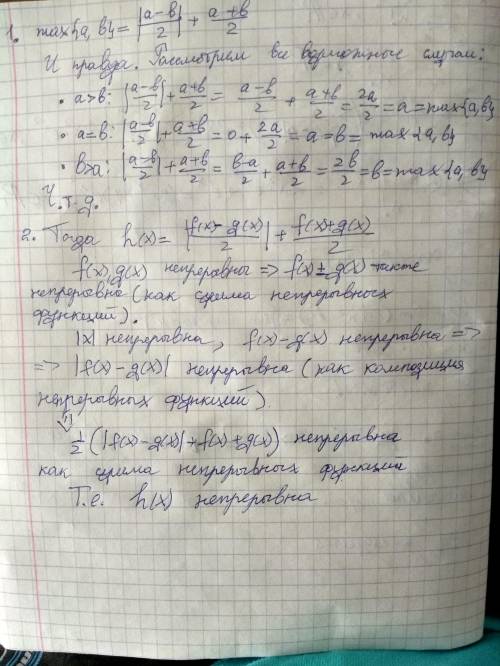 1. max{a, b} = |a-b/2| + a+b/2
И правда. Рассмотрим все возможные случаи:
• a>b: |a-b/2| + a+b/2 = a-b/2 + a+b/2 = 2a/2 = a = max{a, b}
• a=b: |a-b/2| + a+b/2 = 0 + 2a/2 = a = b = max{a, b}
• b>a: |a-b/2| + a+b/2 = b-a/2 + a+b/2 = 2b/2 = b = max{a, b}
Ч.т.д.
2. Тогда h(x) = |f(x)-g(x)/2| + f(x)+g(x)/2
f(x), g(x) непрерывны => f(x) ± g(x) также
непрерывна (как сумма непрерывных
функций).
|x| непрерывна, f(x)-g(x) непрерывна =>
=> |f(x)-g(x)| непрерывна (как композиция
непрерывных функций).
⇓
1/2 (|f(x)-g(x)| + f(x)+g(x)) непрерывна
как сумма непрерывных функций
Т.е. h(x) непрерывна